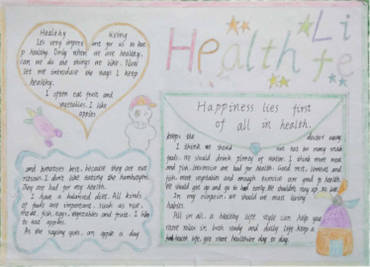 Health Life
Healthy living
Let very import are for us to kee
p healthy. Only when we are healthy,
can we do the things we like. Now
let me introduce the ways I keep
healthy.
I often eat fruit and
vegetables. I like
apples
and tomatoes best, because they are nut
ritious. I don't like eating the hamburgers.
They are bad for my health.
I have a balanced diet. All kinds
of foods are important, such as rice,
meat, fish, eggs, vegetables and fruit. I like
to eat apples.
As the saying goes, an apple a day
Happiness lies first
of all in health.
keeps the doctor away.
I think we should not eat too many
foods. We should drink of water. I think more meat
and fish, television are bad for health. Good rest,
fish, more vegetables and enough exercise are good to health.
We should get up and go to bed early. We shouldn't stay up too late.
In my opinion, we should we must
habits.
All in all, a healthy life style can help you
relax in both and daily life. Keep a
health life, you more healthier day to day.